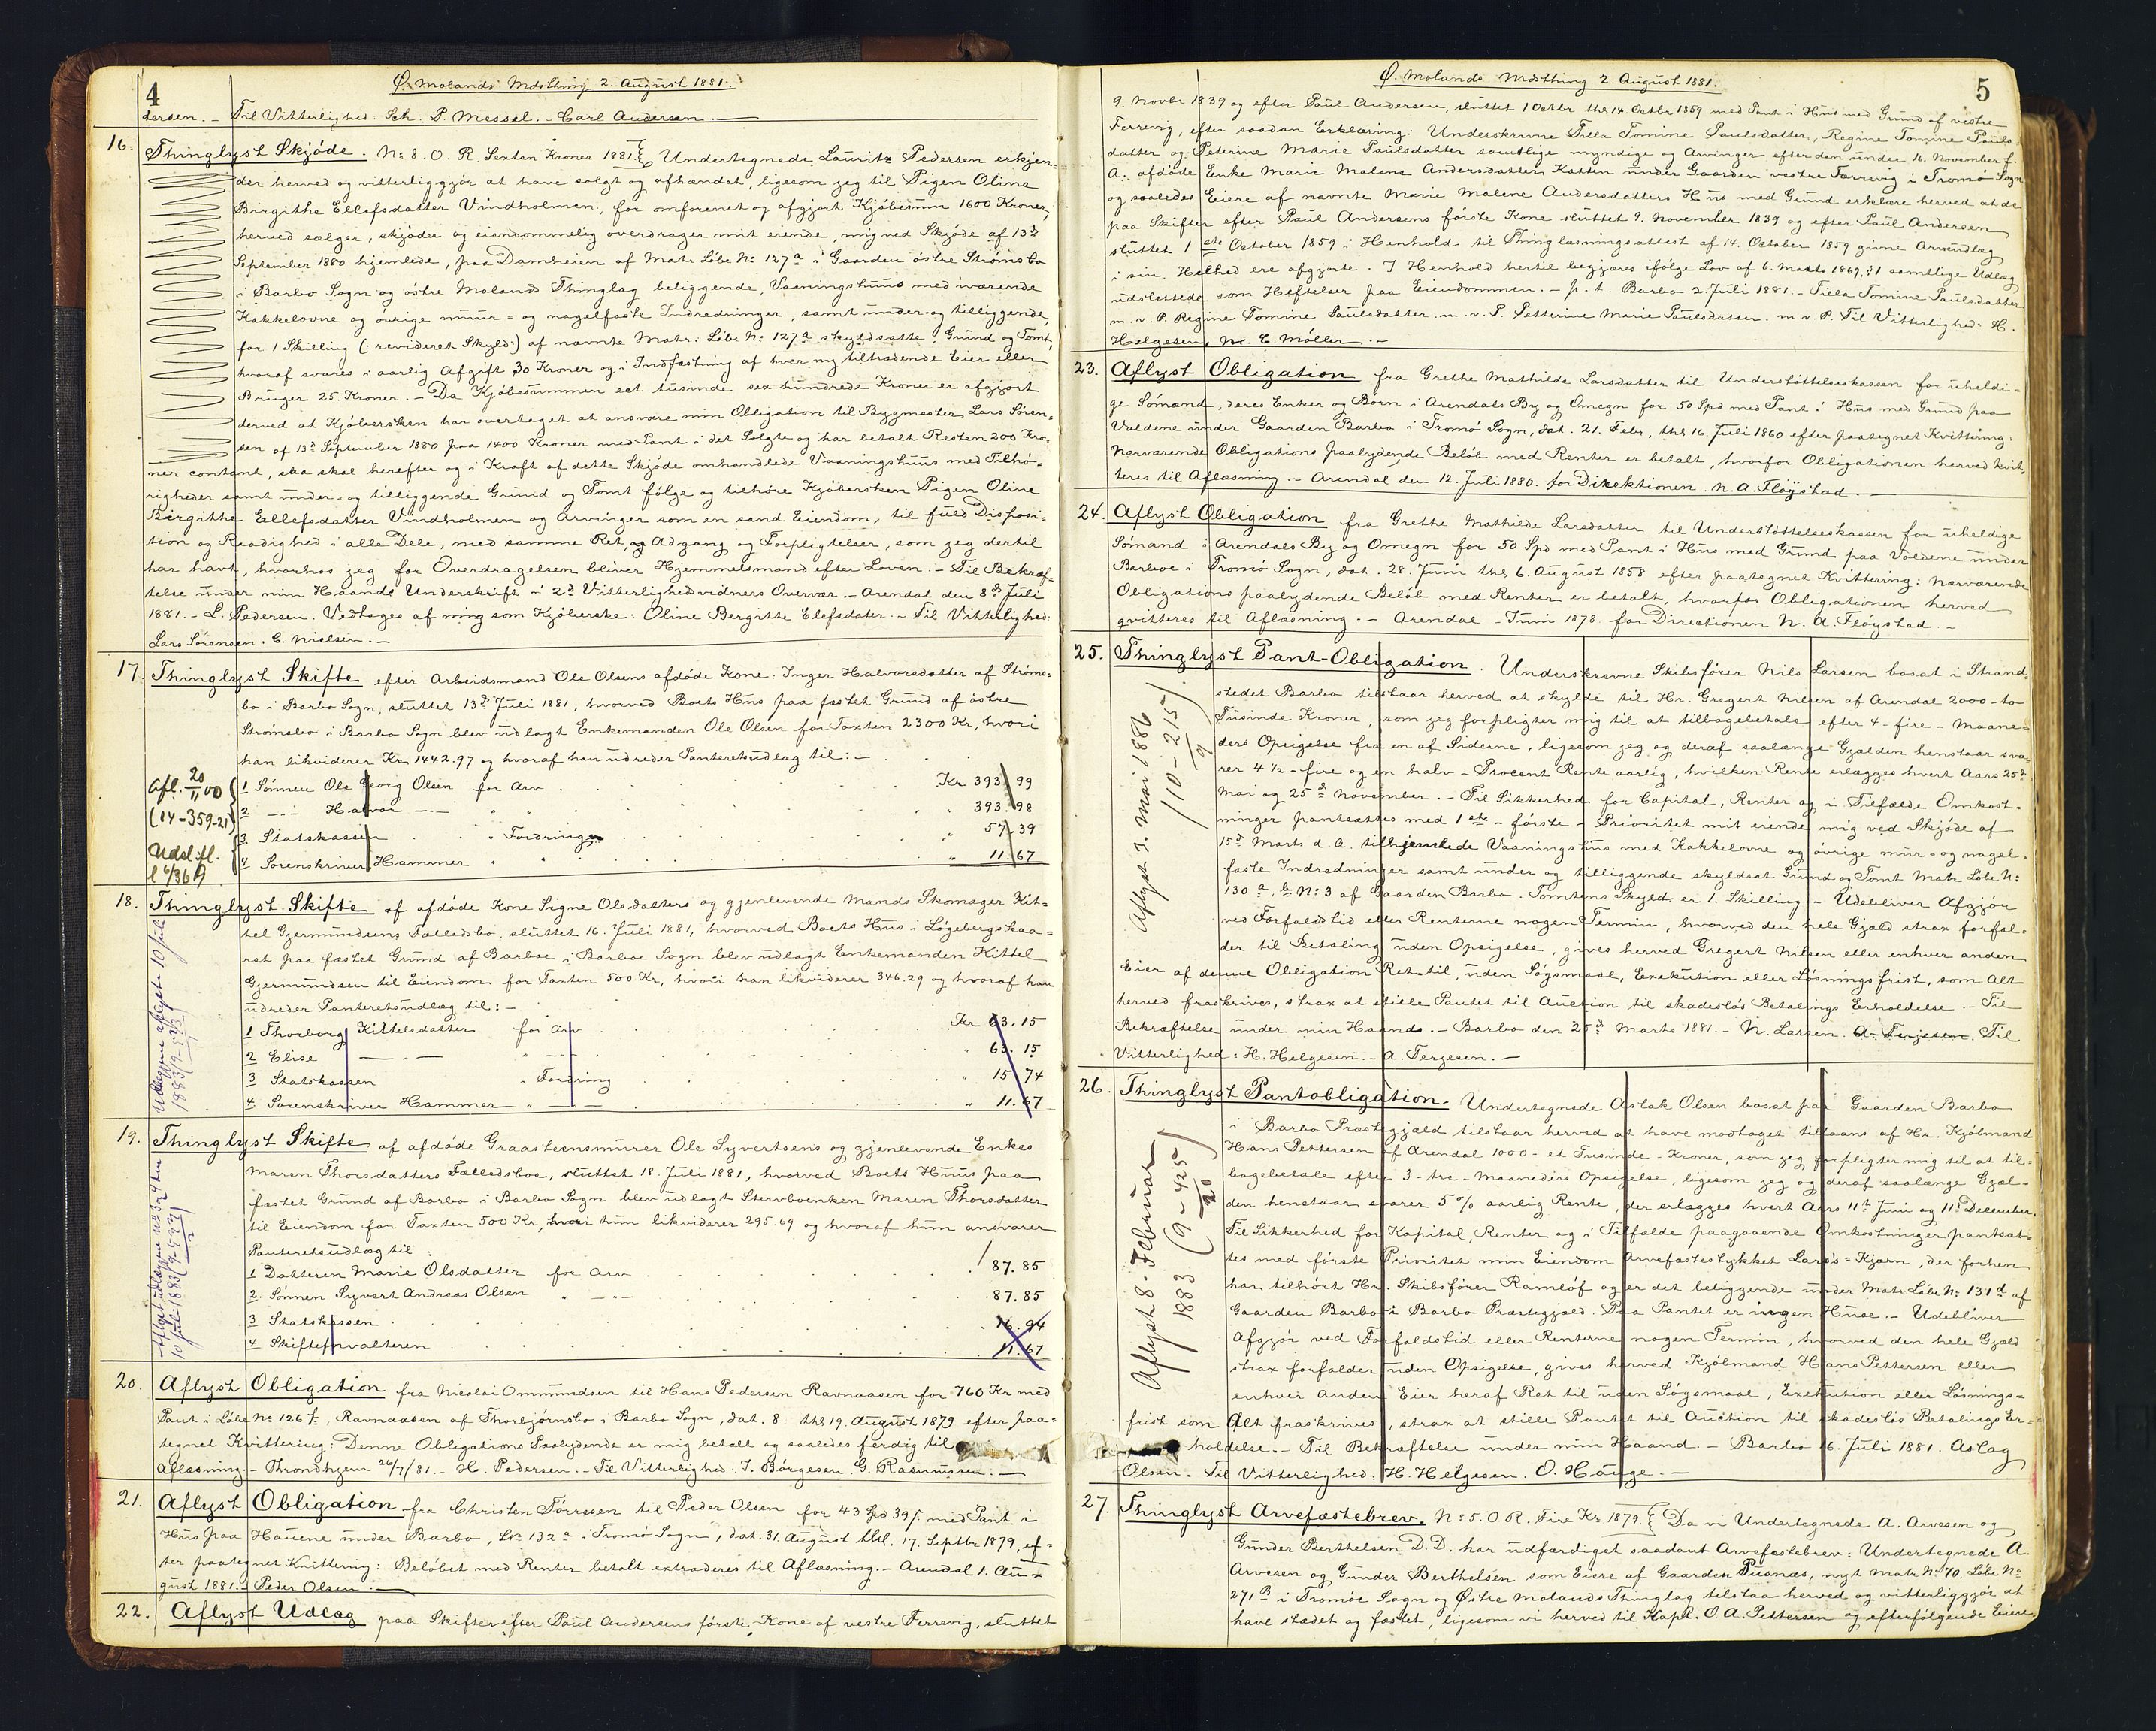 4
Ø. Molands Mdsthing 2. August 1881.
dersen. — Til Vitterlighed: Sch. P. Messel. — Carl Andersen. —
16. Thinglyst Skjøde. No 8. O. R. Sexten Kroner 1881. Undertegnede Lauritz Pedersen erkjen=
der herved og vitterliggjør at have solgt og afhændet, ligesom jeg til Pigen Oline
Birgithe Ellefsdatter Vindholmen, for omforenet og afgjort Kjøbesum 1600 Kroner,
herved sælger, skjøder og eiendommelig overdrager mit eiende, mig ved Skjøde af 13de
September 1880 hjemlede, paa Damheien af Matr. Løbe No 127a i Gaarden østre Strømsbo
i Barbo Sogn og østre Molands Thinglag beliggende, Vaaningshuus med iværende
Kakkelovne og øvrige muur= og nagelfaste Indredninger, samt under- og tilliggende,
for 1 Skilling (: revideret Skyld:) af nævnte Matr. Løbe No 127a skyldsatte Grund og Tomt,
hvoraf svares i aarlig Afgift 30 Kroner og i Indfæstning af hver ny tiltrædende Eier eller
Bruger 25 Kroner. — Da Kjøbesummen eet tusinde sex hundrede Kroner er afgjort
derved at Kjøbersken har overtaget at ansvare min Obligation til Bygmester Lars Søren=
sen af 13de September 1880 paa 1400 Kroner med Pant i det Solgte og har betalt Resten 200 Kro=
ner contant, saa skal herefter og i Kraft af dette Skjøde omhandlede Vaaningshuus med Tilhø=
righeder samt under- og tilliggende Grund og Tomt følge og tilhøre Kjøbersken Pigen Oline
Birgithe Ellefsdatter Vindholmen og Arvinger som en sand Eiendom, til fuld Disposi=
tion og Raadighed i alle Dele, med samme Ret, og Adgang og Forpligtelser, som jeg dertil
har havt, hvorhos jeg for Overdragelsen bliver Hjemmelsmand efter Loven. — Til Bekræf=
telse under min Haands Underskrift i 2de Vitterlighedsvidners Overvær. — Arendal den 8de Juli
1881. — L. Pedersen. Vedtages af mig som Kjøberske: Oline Bergitte Elefsdater. — Til Vitterlighed:
Lars Sørensen. C. Nielsen. —
17. Thinglyst Skifte efter Arbeidsmand Ole Olsens afdøde Kone: Inger Halvorsdatter af Strøms=
bo i Barbo Sogn, sluttet 13de Juli 1881, hvorved Boets Hus paa fæstet Grund af østre
Strømsbo i Barbo Sogn blev udlagt Enkemanden Ole Olsen for Taxten 2300 Kr, hvori
han likviderer Kr 1442.97 og hvoraf han udreder Panteretsudlæg til: —
1 Sønnen Ole Georg Olsen for Arv . Kr 393.99
2 —"— Halvor —"— " 393.98
3. Statskassen " Fordringen " 57.39
4. Sorenskriver Hammer " " " 11.67
Afl. 20/11 00
(14-359-21)
Udsl. fl.
l 6/36
18. Thinglyst Skifte af afdøde Kone Signe Olsdatters og gjenlevende Mands Skomager Kit=
tel Gjermundsens Fælledsbo, sluttet 16. Juli 1881, hvorved Boets Hus i Løgebergskaa=
ret paa fæstet Grund af Barboe i Barboe Sogn blev udlagt Enkemanden Kittel
Gjermundsen til Eiendom for Taxten 500 Kr, hvori han likviderer 346.29 og hvoraf han
udreder Panteretsudlæg til: —
1 Thorborg Kittelsdatter for Arv Kr 63.15
2 Elise —"— " —"— " 63.15
3 Statskassen " Fordring " 15.74
4. Sorenskriver Hammer " —"— " 11.67
Udlæggene aflyste 10 juli
1883
19. Thinglyst Skifte af afdøde Graasteensmurer Ole Syvertsens og gjenlevende Enkes
Maren Thorsdatters Fælledsboe, sluttet 18. Juli 1881, hvorved Boets Huus paa
fæstet Grund af Barbo i Barbo Sogn blev udlagt Stervboenken Maren Thorsdatter
til Eiendom for Taxten 500 Kr, hvori hun likviderer 295.69 og hvoraf hun ansvarer
Panteretsudlæg til:
1 Datteren Marie Olsdatter for Arv 87.85
2. Sønnen Syvert Andreas Olsen " —"— 87.85
3 Statskassen 16.94
4 Skifteforvalteren 11.67
Aflyst udlæggene No 3 og 4 den
10 juli 1883
20. Aflyst Obligation fra Nicolai Omundsen til Hans Pedersen Ravnaasen for 760 Kr med
Pant i Løbe No 126f, Ravnaasen af Thorbjørnsbo i Barbo Sogn, dat. 8. thl 19. August 1879 efter paa=
tegnet Kvittering: Denne Obligations Paalydende er mig betalt og saaledes ferdig til
Aflæsning. — Throndhjem 26/7/81. — H. Pedersen. — Til Vitterlighed: J. Børgesen. G. Rasmussen. —
21. Aflyst Obligation fra Christen Tørresen til Peder Olsen for 43 Spd 39 s. med Pant i
Hus paa Hauene under Barbo, Lno 132a i Tromø Sogn, dat. 31. August thl. 17. Septbr 1879, ef=
ter paategnet Kvittering: Beløbet med Renter betalt extraderes til Aflæsning. — Arendal 1. Au=
gust 1881. Peder Olsen. —
22. Aflyst Udlæg paa Skifter efter Paul Andersens første Kone af vestre Ferrevig, sluttet
5
Ø. Molands Mdsthing 2. August 1881.
9. Novbr 1839 og efter Paul Andersen, sluttet 1 Octbr thl 14. Octbr 1859 med Pant i Hus med Grund af vestre
Ferrevig, efter saadan Erklæring: Underskrevne Tilla Tomine Paulsdatter, Regine Tomine Pauls=
datter og Peterine Marie Paulsdatter samtlige myndige og Arvinger efter den under 16. November f.
A. afdøde Enke Marie Malene Andersdatter Katten under Gaarden vestre Færrevig i Tromø Sogn
og saaledes Eiere af nævnte Marie Malene Andersdatters Hus med Grund erklære herved at de
paa Skifter efter Paul Andersens første Kone sluttet 9. November 1839 og efter Paul Andersen
sluttet 1ste October 1859 i Henhold til Thinglæsningsattest af 14. October 1859 givne Arveudlæg
i sin Helhed ere afgjorte. I Henhold hertil begjæres ifølge Lov af 6. Marts 1869, § 1 samtlige Udlæg
udslettede som Heftelser paa Eiendommen. — p. t. Barbo 2. Juli 1881. — Tilla Tomine Paulsdatter
m. v. P. Regine Tomine Paulsdatter. m. v. P. Petterine Marie Paulsdatter. m. v. P. Til Vitterlighed: H.
Helgesen, M. E. Møller. —
23. Aflyst Obligation fra Grethe Mathilde Larsdatter til Understøttelseskassen for uheldi=
ge Sømænd, deres Enker og Børn i Arendals By og Omegn for 50 Spd med Pant i Hus med Grund paa
Voldene under Gaarden Barbo i Tromø Sogn, dat. 21. Febr, thl 16. Juli 1860 efter paategnet Kvittering:
Nærværende Obligations paalydende Beløb med Renter er betalt, hvorfor Obligationen herved kvit=
teres til Aflæsning. — Arendal den 12. Juli 1880. for Direktionen. N. A. Fløystad. —
24. Aflyst Obligation fra Grethe Mathilde Larsdatter til Understøttelseskassen for uheldige
Sømænd i Arendals By og Omegn for 50 Spd med Pant i Hus med Grund paa Voldene under
Barboe i Tromø Sogn, dat. 28. Juni thl 6. August 1858 efter paategnet Kvittering: Nærværende
Obligations paalydende Beløb med Renter er betalt, hvorfor Obligationen herved
qvitteres til Aflæsning. — Arendal — Juni 1878 for Directionen N. A. Fløystad. —
25. Thinglyst Pant-Obligation. Underskrevne Skibsfører Nils Larsen bosat i Strand
stedet Barbo tilstaar herved at skylde til Hr. Gregert Nilsen af Arendal 2000 - to
Tusinde Kroner, som jeg forpligter mig til at tilbagebetale efter 4 - fire - Maane=
ders Opsigelse fra en af Siderne, ligesom jeg og deraf saalænge Gjælden henstaar sva=
rer 4½ - fire og en halv - Procent Rente aarlig, hvilken Rente erlægges hvert Aars 25de
Mai og 25de November. — Til Sikkerhed for Capital, Renter og i Tilfælde Omkost=
ninger pantsættes med 1ste - første - Prioritet mit eiende mig ved Skjøde af
15de Marts d. A. tilhjemlede Vaaningshus med Kakkelovne og øvrige mur- og nagel=
faste Indredninger samt under og tilliggende skyldsat Grund og Tomt Matr Løbe No
130a, b No 3 af Gaarden Barbo. Tomtens Skyld er 1. Skilling. — Udebliver Afgjør
ved Forfaldstid eller Renterne nogen Termin, hvorved den hele Gjæld strax forfal=
der til Betaling uden Opsigelse, gives herved Gregert Nilsen eller enhver anden
Eier af denne Obligation Ret til, uden Søgsmaal, Exekution eller Løsningsfrist, som Alt
herved fraskrives, strax at stille Pantet til Auction til skadesløs Betalings Erholdelse. — Til
Bekræftelse under min Haand. — Barbo den 25de Marts 1881. — N. Larsen. A. Terjesen. Til
Vitterlighed: H. Helgesen. — A. Terjesen. —
Aflyst 3. Mai 1886
(10-215)
9
26. Thinglyst Pantobligation. Undertegnede Aslak Olsen bosat paa Gaarden Barbo
i Barbo Præstegjæld tilstaar herved at have modtaget tillaans af Hr. Kjøbmand
Hans Pettersen af Arendal 1000 - et Tusinde - Kroner, som jeg forpligter mig til at til=
bagebetale efter 3 - tre - Maaneders Opsigelse, ligesom jeg og deraf saalænge Gjæl=
den henstaar svarer 5 % aarlig Rente, der erlægges hvert Aars 11te Juni og 11te December.
Til Sikkerhed for Kapital, Renter og i Tilfælde paagaaende Omkostninger pantsæt=
tes med første Prioritet min Eiendom Arvefæstestykket Lars's=Kjærn, der forhen
har tilhørt Hr. Skibsfører Ramløf og er det beliggende under Matr. Løbe No 131d af
Gaarden Barbo i Barbo Præstegjæld. Paa Pantet er ingen Huse. — Udebliver
Afgjør ved Forfaldstid eller Renterne nogen Termin, hvorved den hele Gjæld
strax forfalder uden Opsigelse, gives herved Kjøbmand Hans Pettersen eller
enhver Anden Eier heraf Ret til uden Søgsmaal, Exekution eller Løsnings=
frist som Alt fraskrives, strax at stille Pantet til Auction til skadesløs Betalings Er=
holdelse. — Til Bekræftelse under min Haand — Barbo 16. Juli 1881. Aslag
Olsen. Til Vitterlighed: H. Helgesen. O. Hauge. —
Aflyst 8. Februar
1883 (9-425)
20
27. Thinglyst Arvefæstebrev. No 5. O R. Fire Kr 1879. Da vi Undertegnede A. Arvesen og
Gunder Berthelsen D.D. har udfærdiget saadant Arvefæstebrev: Undertegnede A.
Arvesen og Gunder Berthelsen som Eiere af Gaarden Pusnæs, nyt Matr No 70, Løbe No
271B i Tromøe Sogn og Østre Molands Thinglag tilstaa herved og vitterliggjør at
have stædet og fæstet, ligesom vi herved til Kapt. O. A. Pettersen og efterfølgende Eiere